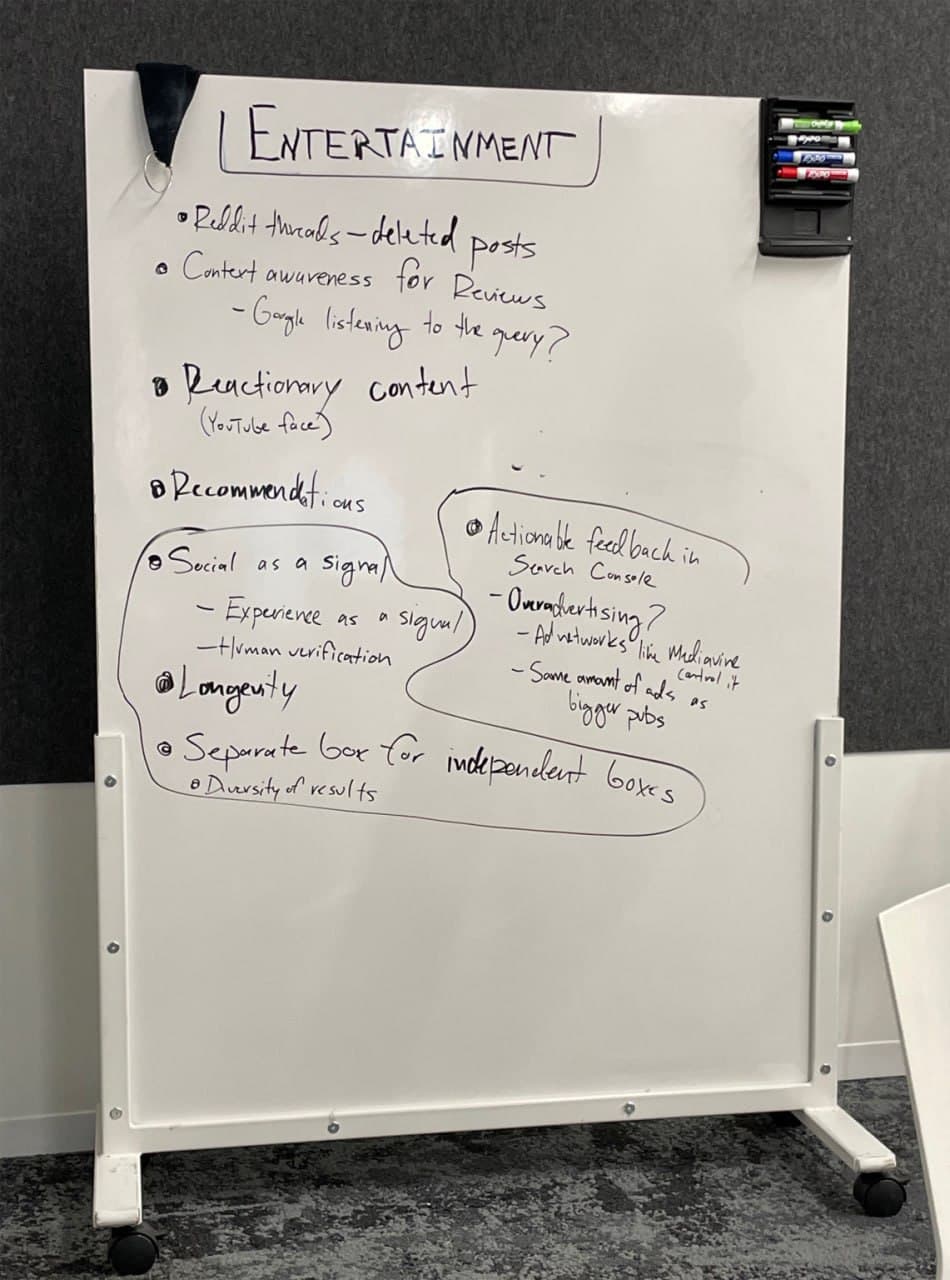 ENTERTAINMENT
• Reddit threads – deleted posts
• Context awareness for Reviews
– Google listening to the query?
• Reactionary content
(YouTube face)
• Recommendations
• Social as a signal
– Experience as a signal
– Human verification
• Longevity
• Separate box for independent boxes
• Diversity of results
• Actionable feedback in
Search Console
– Overadvertising?
– Ad networks like Mediavine
control it
– Same amount of ads as
bigger pubs
EXPO